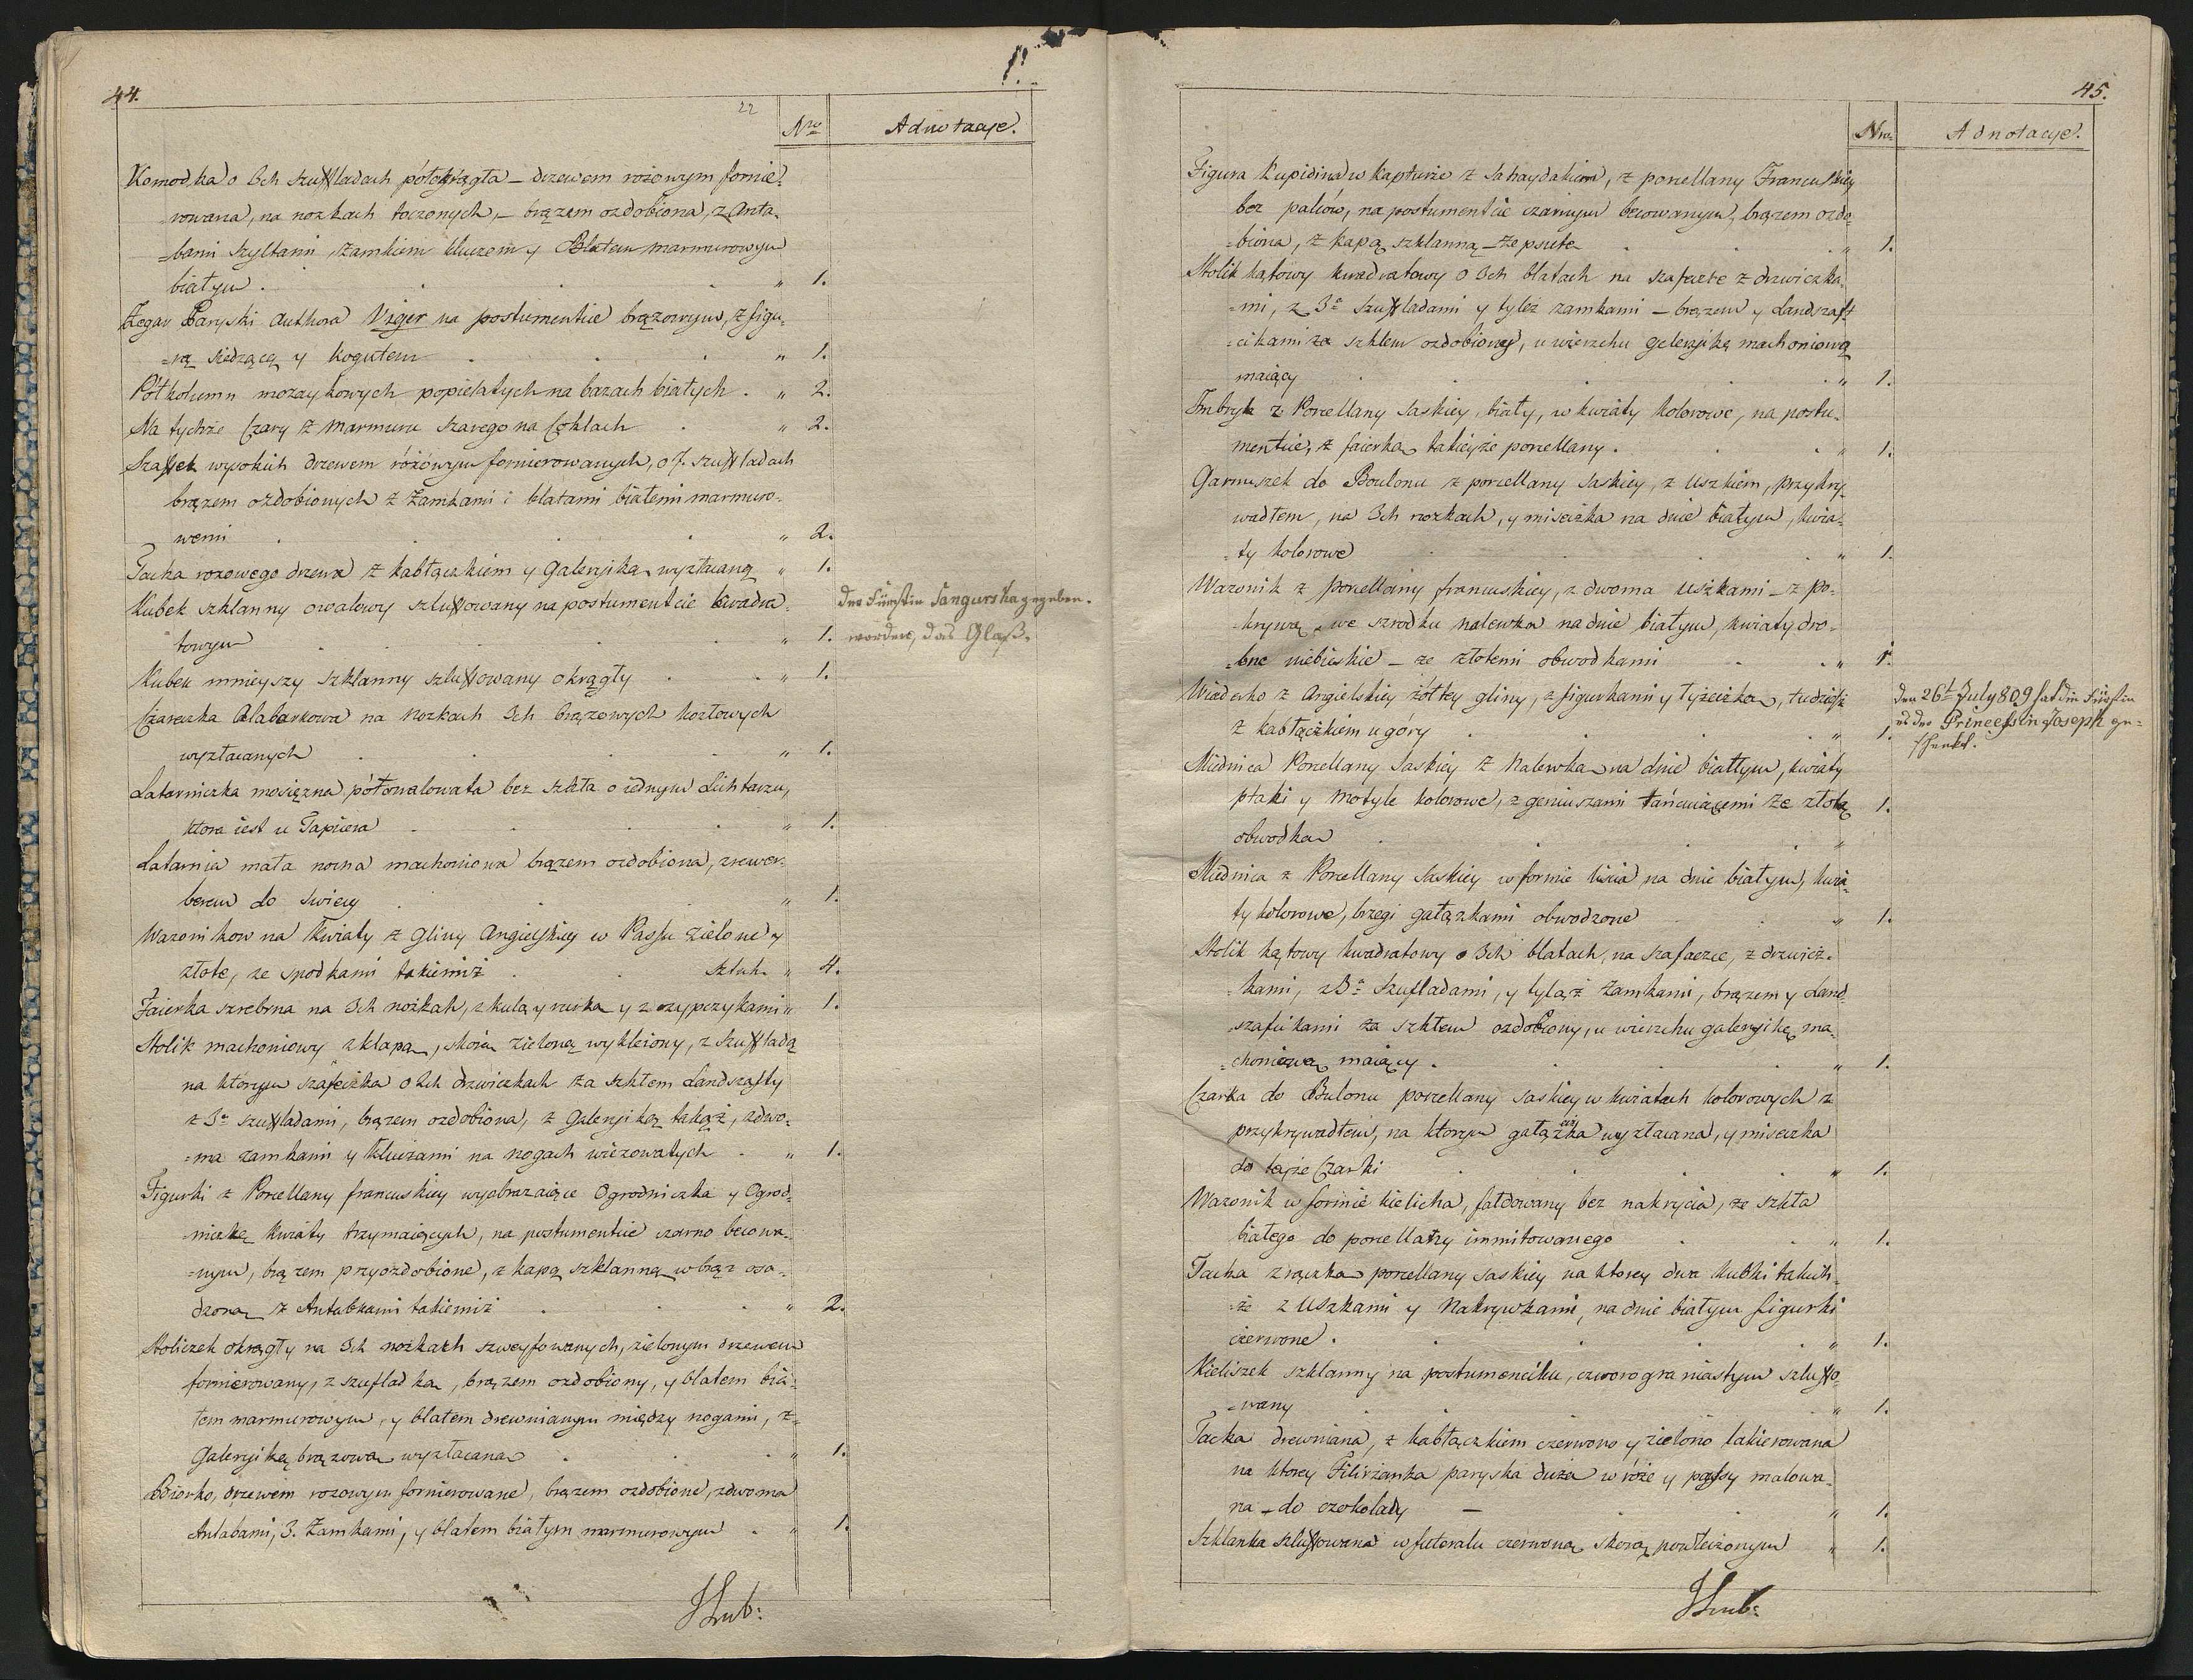 44.
22
Nro
Adnotacye.
Komodka o 3ch szufladach półokrągła – drzewem rożowym fornie-
rowana, na nozkach toczonych, – brązem ozdobiona, z Anta-
=bami szyltami zamkiem kluczem y Blatem marmurowym
białym . . . . " 1.
Zegar Paryski Authora Viger na postumencie brązowym, z figu-
=rą siedzącą y kogutem . . . " 1.
Półkolumn mozaykowych popielatych na bazach białych . " 2.
Na tychże Czary z marmuru szarego na Coklach . " 2.
Szafek wysokich drzewem różowym fornierowanych, o 7. szufladach
brązem ozdobionych z Zamkami i blatami białemi marmuro-
wemi . . . . " 2.
Tacka rozowego drzewa z kabłączkiem y Galeryjką wyzłacaną " 1.
Kubek szklanny owalowy szlufowany na postumencie kwadra-
towym . . . . " 1.
der Fürstin Sangurska gegeben
worden, das Glaß.
Kubek mnieyszy szklanny szlufowany okrągły . . " 1.
Czareczka Alabastrowa na Nozkach 3ch brązowych kozłowych
wyzłacanych . . . . " 1.
Latarniczka mosiężna półowalowata bez szkła o iednym Lichtarzu,
ktora iest u Tapicera . . . . " 1.
Latarnia mała nocna machoniowa brązem ozdobiona, z rewer-
berem do swiecy . . . " 1.
Wazonikow na kwiaty z gliny Angielskiey w Passu zielone y
złote, ze spodkami takiemiż . . Sztuk " 4.
Faierka srebrna na 3ch nożkach, z kulą y rurką y szczypczykami " 1.
Stolik machoniowy z klapą, skórą zieloną wykleiony, z szufladą
na ktorym szafeczka o 2ch drzwiczkach za szkłem Landszafty
z 3a szufladami, brązem ozdobiona, z Galeryjką takąż, z dwo-
=ma zamkami y kluczami na nogach wiezowatych . " 1.
Figurki z Porcellany francuskiey wyobrazaiące Ogrodniczka y Ogrod-
niczkę kwiaty trzymaiących, na postumencie czarno becowa-
=nym, brązem przyozdobione, z kapą szklanną w brąz osa-
dzoną z Antabkami takiemiż . . . " 2.
Stoliczek okrągły na 3ch nożkach szweyfowanych, zielonym drzewem
fornierowany, z szufladką, brązem ozdobiony, y blatem bia-
łem marmurowym, y blatem drewnianym między nogami, z
Galeryjką brązową wyzłacaną . . . " 1.
Biorko, drzewem rozowym fornierowane, brązem ozdobione, z dwoma
Antabami, 3. Zamkami, y blatem białym marmurowym . " 1.
45.
Nro
Adnotacye.
Figura Kupidina w kapturze z sahaydakiem, z porcellany Francuskiey
bez palców, na postumencie czarnym becowanym, brązem ozdo-
=biona, z kapą szklanną – zepsuta . . " 1.
Stolik kątowy kwadratowy o 3ch blatach na szafeczce z drzwiczka-
=mi, z 3a szufladami y tyleż zamkami – brązem y Landszaft-
=cikami za szkłem ozdobiony, u wierzchu galeryjkę machoniową
maiący . . . . " 1.
Imbryk z Porcellany Saskiey, biały, w kwiaty kolorowe, na postu-
mencie, z faierką takieyże porcellany . . . " 1.
Garnuszek do Boulonu z porcellany Saskiey, z Uszkiem, przykry-
wadłem, na 3ch nozkach, y miseczka na dnie białym, kwia-
=ty kolorowe . . . " 1.
Wazonik z Porcellainy francuskiey, z dwoma uszkami – z po-
=krywą, we szrodku nalewka na dnie białym, kwiaty dro-
=bne niebieskie – ze złotemi obwodkami . . " 1.
Wiaderko z Angielskiey żółtey gliny, z figurkami y łyżeczką, tudzież
z kabłączkiem u góry . . . " 1.
den 26t July 809 hat die Fürstin
es der Princessin Joseph ge-
schenkt.
Miednica Porcellany Saskiey z Nalewką na dnie białłym, kwiaty
ptaki y Motyle kolorowe, z geniuszami tańcuiącemi ze złotą 1.
obwodką . . . . "
Miednica z Porcellany Saskiey w formie liścia na dnie białym, kwia-
ty kolorowe, brzegi gałązkami obwodzone . " 1.
Stolik kątowy kwadratowy o 3ch blatach, na szafeczce, z drzwicz-
kami, z 3a Szufladami, y tyląż Zamkami, brązem y Land-
szafcikami za szkłem ozdobiony, u wierzchu galeryjkę ma-
=choniową maiący . . . . " 1.
Czarka do Bulonu porcellany saskiey w kwiatach kolorowych z
przykrywadłem, na ktorym gałązka wyzłacana, y miseczka
do teyże Czarki . . . " 1.
Wazonik w formie kielicha, fałdowany bez nakrycia, ze szkła
białego do porcellany immitowanego . . " 1.
Tacka z rączką porcellany saskiey na ktorey dwa kubki takich-
że z Uszkami y Nakrywkami, na dnie białym figurki
czerwone . . . . " 1.
Kieliszek szklanny na postumenciku, czworograniastym szlufo-
=wany . . . . " 1.
Tacka drewniana, z kabłączkiem czerwono y zielono lakierowana
na ktorey Filiżanka paryska duża w róże y passy malowa-
na – do czokolady – . . " 1.
Szklanka szlufowana w futerale czerwoną skorą powleczonym " 1.